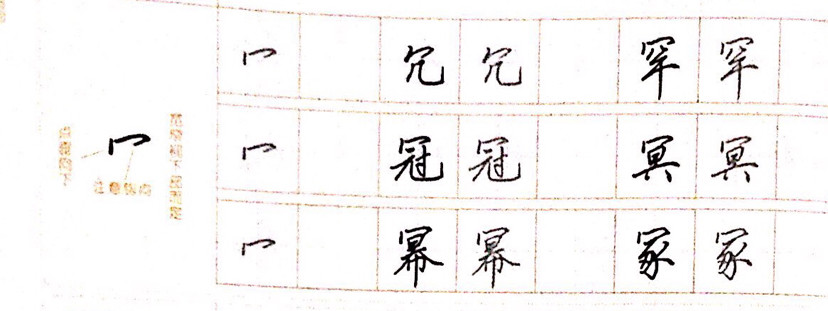 冖 冗 冗 罕 罕
冖 冖 冠 冠 冥 冥
冖 幂 幂 冢 冢